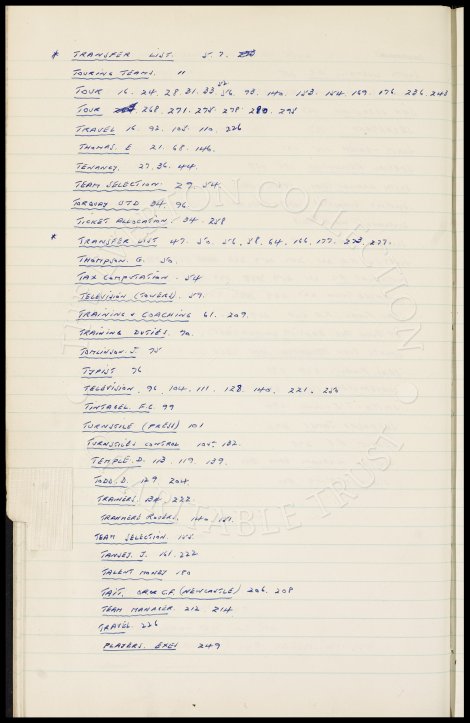 * TRANSFER LIST. 5. 7.
TOURING TEAMS. "
TOUR 16. 24. 28 31. 33 56. 93. 140. 153. 154. 169. 176. 236. 243
TOUR 268. 271. 275. 278. 280. 295
TRAVEL 16. 92. 105. 110. 226
THOMAS. E 21. 68. 146.
TENANCY. 27. 36. 44.
TEAM SELECTION. 27. 54.
TORQUAY UTD 34. 96.
TICKET ALLOCATION. 34. 258
* TRANSFER LIST 47. 50. 56. 58. 64. 166. 177. 277.
THOMPSON. G. 50.
TAX COMPUTATION. 54
TELEVISION (TOWERS). 57.
TRAINING & COACHING 61. 209.
TRAINING DUTIES. 70.
TOMLINSON. J. 75
TYPIST 76
TELEVISION. 96. 104. 111. 128. 140. 221. 250
TINTAGEL. F.C. 99
TURNSTILE (PRESS) 101
TURNSTILES CONTROL 105. 132.
TEMPLE. D. 113. 119. 139.
TODD. D. 129 204
TRAINERS. 134. 222.
TRANMERE ROVERS. 140. 151.
TEAM SELECTION. 155.
TANSEY. J. 161. 222
TALENT MONEY 180
TAIT. (NEWCASTLE) 206. 208
TEAM MANAGER 212. 214
TRAVEL 226
PLAYERS. 249
THE COLLECTION
CHARITABLE TRUST